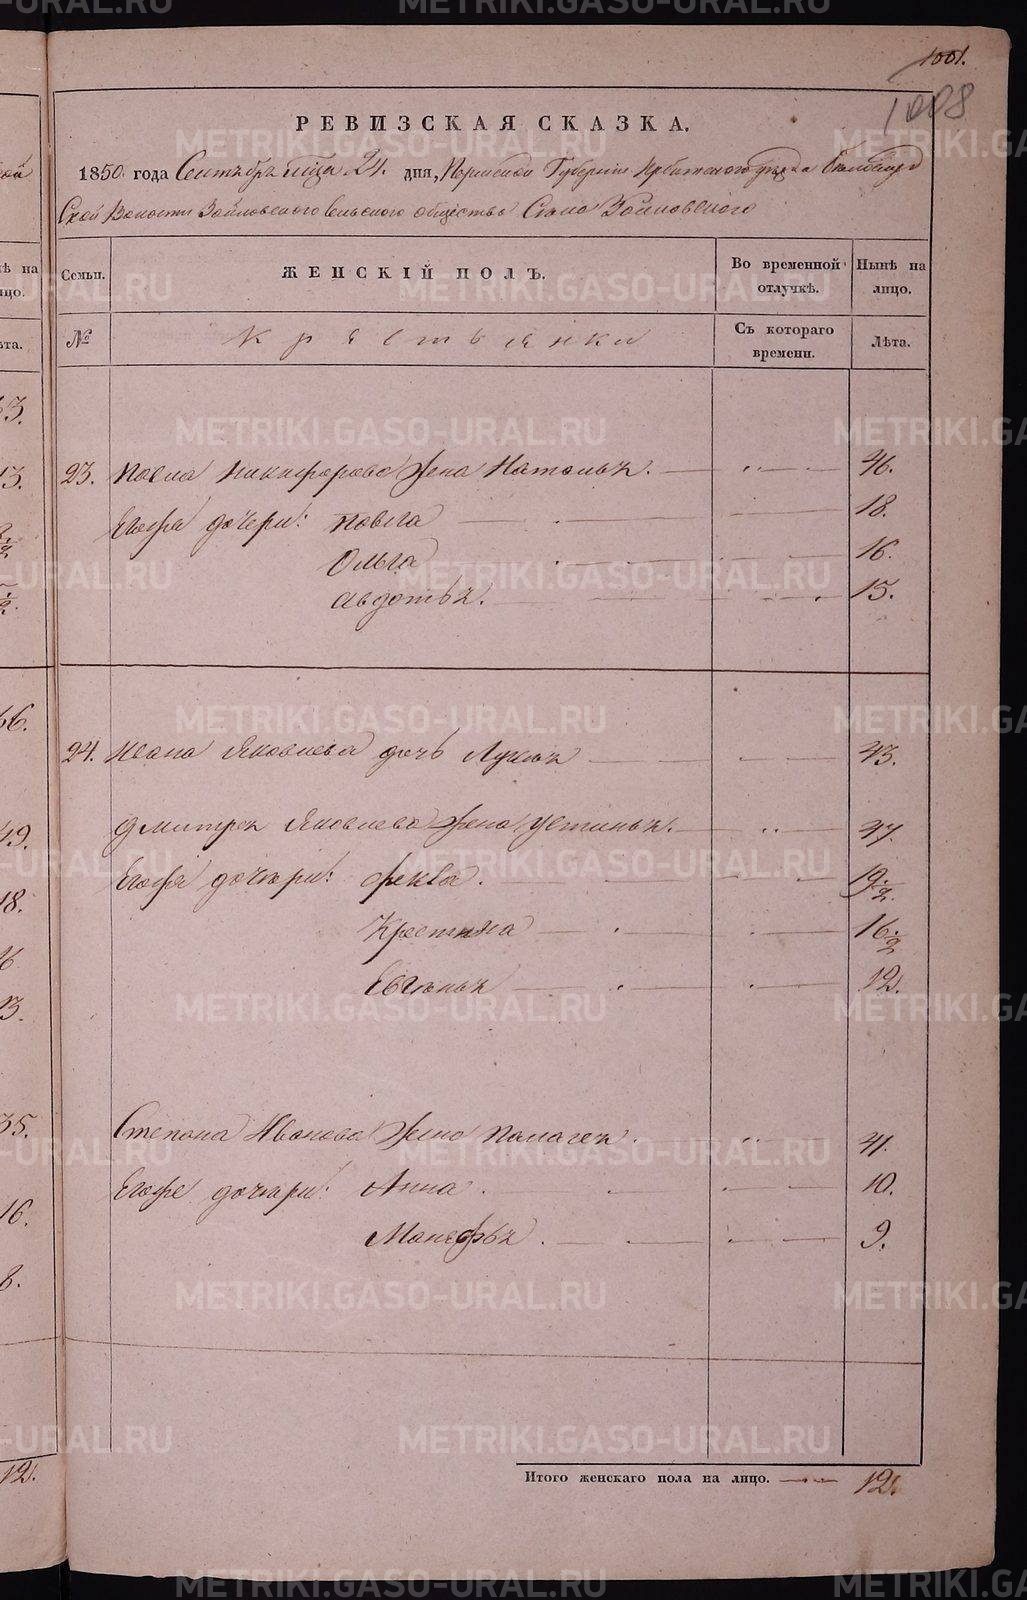 1001.
1008
РЕВИЗСКАЯ СКАЗКА.
1850 года Сентября м̃ца 21. дня, Пермской Губернiи Ирбитскаго уѣзда
Ской Волости Зайковскаго сельскаго общества Села Зайковскаго
Семьи. ЖЕНСКIЙ ПОЛЪ. Во временной отлучкѣ. Нынѣ на лицо.
№ Крестьянки Съ котораго времени. Лѣта.
23. Павла Никифорова жена Наталья. 46.
Егоже дочери: Павла 18.
Ольга 16.
Авдотья. 15.
24. Ивана Яковлева дочь Лукья 43.
Дмитрея Яковлева жена Устинья. 47.
Егоже дочери: Фекла. 19 ½.
Крестина 16 ½
Евгенья 12.
Степана Иванова жена Палагея. 41.
Егоже дочери: Анна. 10.
Манефья. 9.
Итого женскаго пола на лицо. 12.
METRIKI.GASO-URAL.RU